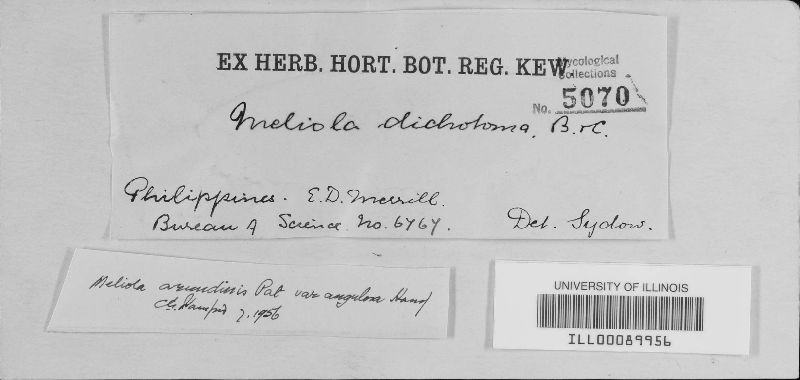 EX HERB. HORT. BOT. REG. KEW.
Mycological
Collections
No. 5070
Meliola dichotoma, B.&C.
Philippines. E.D. Merrill.
Bureau of Science No. 6767.
Det. Sydow.
Meliola arundinis Pat var angulosa
7. 1956
UNIVERSITY OF ILLINOIS
ILL00089956